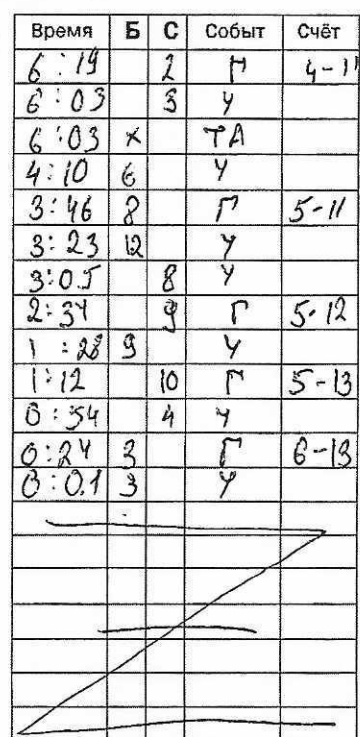 Время Б С Событ Счёт
6:19 2 Г 4-11
6:03 3 У
6:03 х ТА
4:10 6 У
3:46 8 Г 5-11
3:23 12 У
3:05 8 У
2:34 9 Г 5-12
1:28 9 У
1:12 10 Г 5-13
0:54 4 У
0:24 3 Г 6-13
0:01 3 У